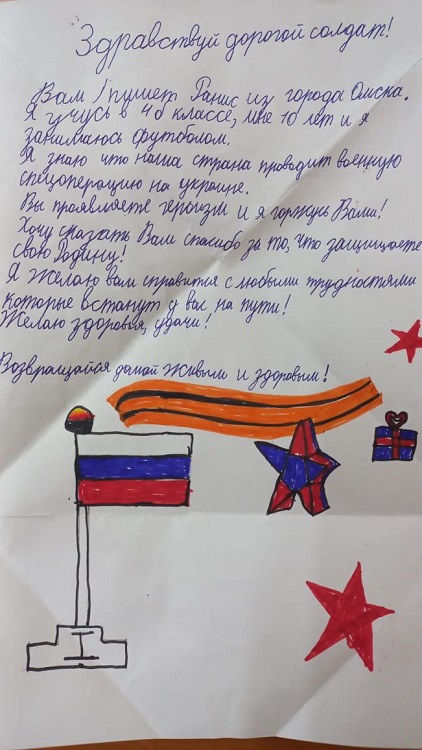 Здравствуй дорогой солдат!
Вам пишет Ранис из города Омска.
Я учусь в 4б классе, мне 10 лет и я
занимаюсь футболом.
Я знаю что наша страна проводит военную
спецоперацию на украине.
Вы проявляете героизм и я горжусь Вами!
Хочу сказать Вам спасибо за то, что защищаете
свою Родину!
Я желаю вам справится с любыми трудностями
которые встанут у вас на пути!
Желаю здоровья, удачи!
Возвращайся домой живым и здоровым!
I